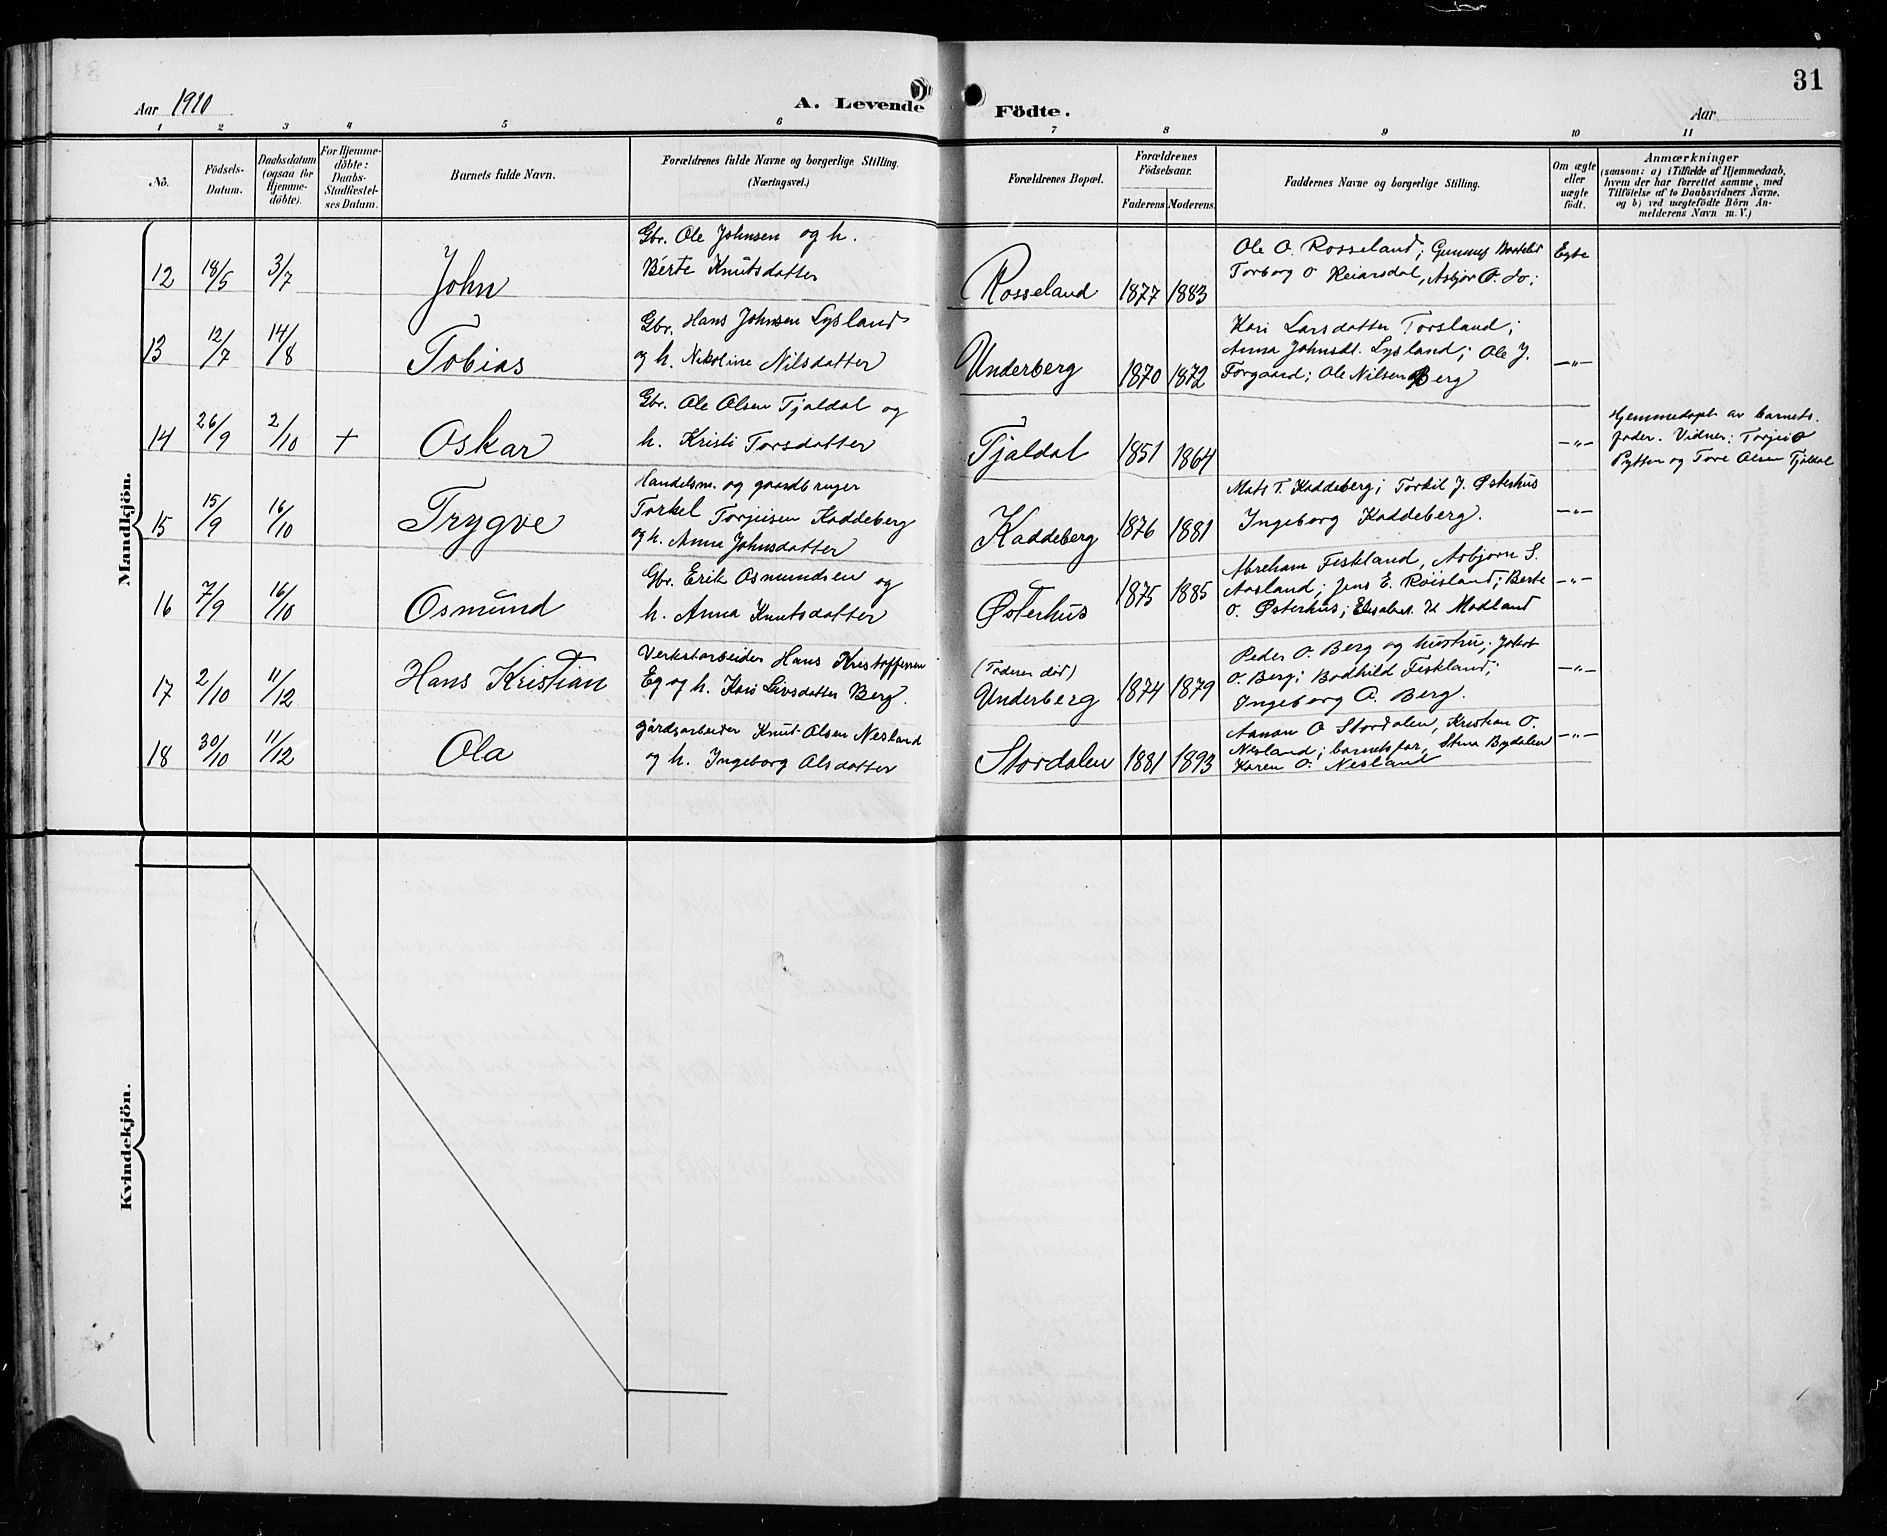 31
Aar 1910
A. Levende Födte.
Aar
1 2 3 4 5 6 7 8 9 10 11
No.
Födsels-Datum.
Daabsdatum (ogsaa for Hjemmedöbte).
For Hjemmedöbte: Daabs-Stadfæstelses Datum.
Barnets fulde Navn.
Forældrenes fulde Navne og borgerlige Stilling.
(Næringsvei.)
Forældrenes Bopæl.
Forældrenes Födselsaar.
Faderens Moderens.
Faddernes Navne og borgerlige Stilling.
Om ægte eller uægte födt.
Anmærkninger
(saasom: a) i Tilfælde af Hjemmedaab,
hvem der har forrettet samme, med
Tilföielse af to Daabsvidners Navne,
og b) ved uægtefödte Börn An-
melderens Navn m. V.)
Mandkjön.
12 18/5 3/7 John
Gbr. Ole Johnsen og h.
Berte Knutsdatter
Rosseland 1877 1883
Ole O. Rosseland; Gunnuf
Torborg O Reiarsdal, Asbjor O. do;
Egte
13 12/7 14/8 Tobias
Gbr. Hans Johnsen Lysland
og h. Nikoline Nilsdatter
Underberg 1870 1872
Kari Larsdatter Torsland;
Anna Johnsdt. Lysland; Ole J.
Forgaard; Ole Nilsen Berg
—"—
14 26/9 2/10 + Oskar
Gbr. Ole Olsen Tjaldal og
h. Kristi Torsdatter
Tjaldal 1851 1864
—"—
Hjemmedøpt av barnets
fader. Vidner: Torjus O
Pytten og Tore Olsen Tjaldal
15 15/9 16/10 Trygve
Handelsm. og gaardbruger
Torkel Torjeisen Kaddeberg
og h. Anna Johnsdatter
Kaddeberg 1876 1881
Mats T. Kaddeberg; Torkil J. Østerhus
Ingeborg Kaddeberg.
—"—
16 7/9 16/10 Osmund
Gbr. Erik Osmundsen og
h. Anna Knutsdatter
Østerhus 1875 1885
Abreham Fiskland, Asbjørn S.
Aasland; Jens E. Røisland; Berte
O. Østerhus; Elisabet K Modland
—"—
17 2/10 11/12 Hans Kristian
Verkstarbeider Hans Kristoffersen
Eg og h. Kari Sivsdatter Berg.
(Faderen død)
Underberg 1874 1879
Peder O. Berg og hustru; Jakob
O. Berg; Bodhild Fiskland;
Ingeborg A. Berg.
—"—
18 30/10 11/12 Ola
gårdsarbeider Knut Olsen Nesland
og h. Ingeborg Olsdatter
Stordalen 1881 1893
Aanon O Stordalen, Kristian O.
Nesland; barnets far, Stina Bydalen
Karen O. Nesland
—"—
Kvindekjön.